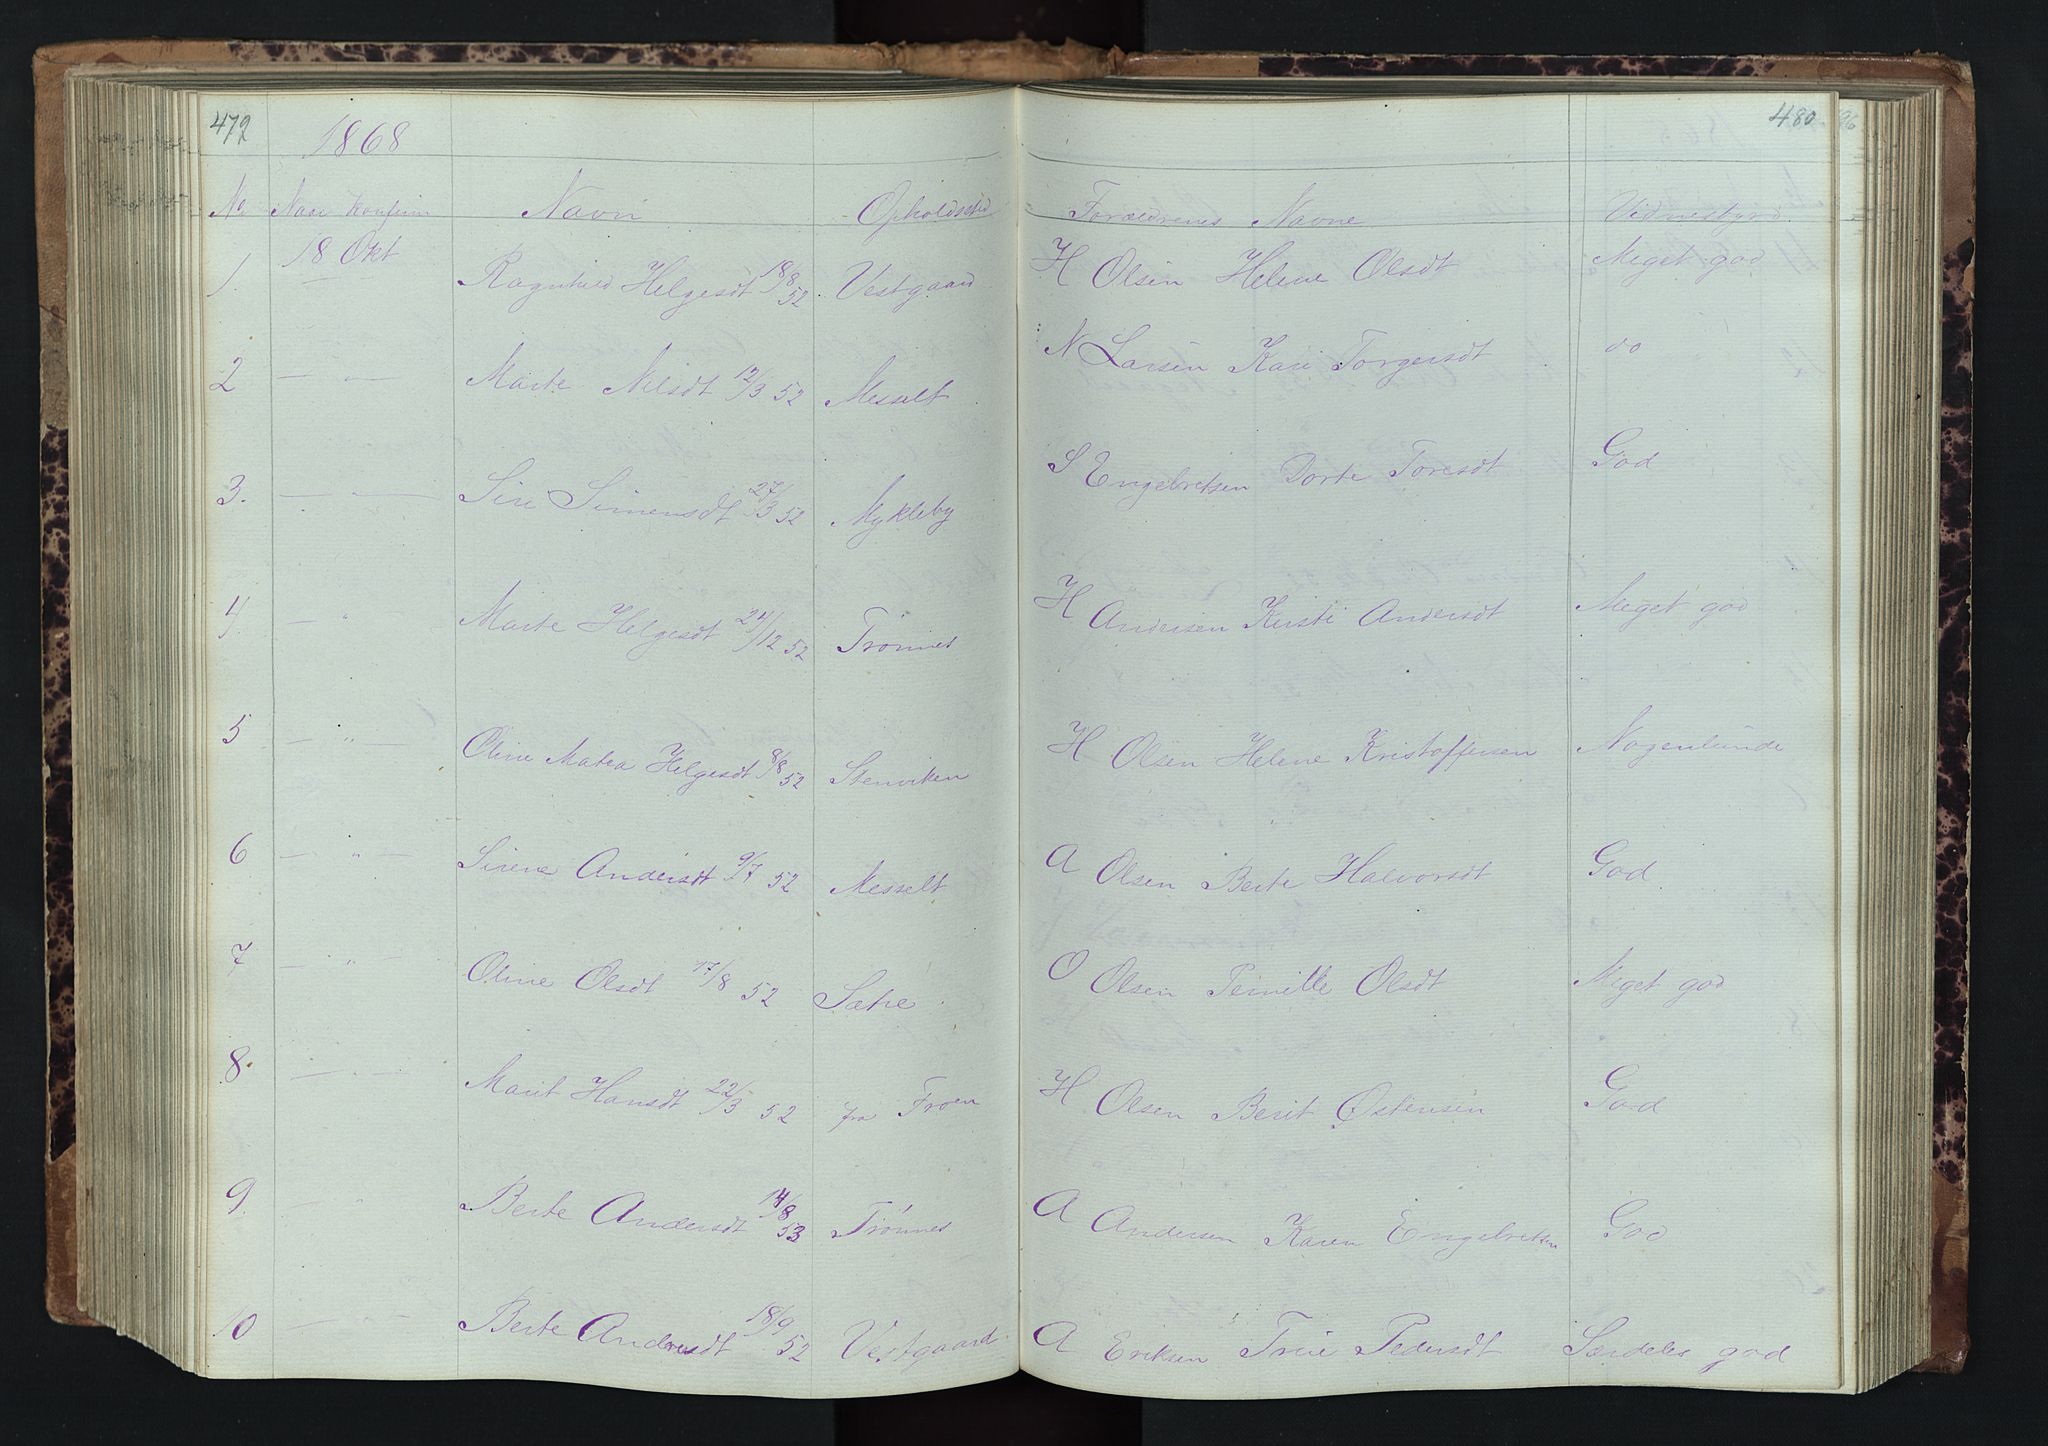 472
1868
480
No Naar Konfirm Navn Opholdssted Forældrenes Navne Vidnesbyrd
18 Okt
1. Ragnhild Helgesdt 18/8 52 Vestgaard H Olsen Helene Olsdt Meget god
2 — " — Marte Nilsdt 12/3 52 Messelt N Larsen Kari Torgersdt do
3. — " — Siri Simensdt 27/3 52 Mykleby S Engebretsen Dorte Toresdt God
4. — " Marte Helgesdt 24/12 52 Trønnes H Andersen Kirsti Andersdt Meget god
5 — " — Oline Matea Helgesdt 8/8 52 Stenviken H Olsen Helene Kristoffersen Nogenlunde
6 — " — Sirene Andersdt 9/7 52 Messelt A Olsen Berte Halvorsdt God.
7 — " — Oline Olsdt 17/8 52 Sætre O Olsen Pernille Olsdt Meget god
8. — " — Marit Hansdt 22/3 52 fra Froen H Olsen Berit Østensen God
9. — " Berte Andersdt 14/8 53 Trønnes A Andersen Karen Engebretsen God
10 — " — Berte Andersdt 18/9 52 Vestgaard A Eriksen Trine Pedersdt Særdeles god